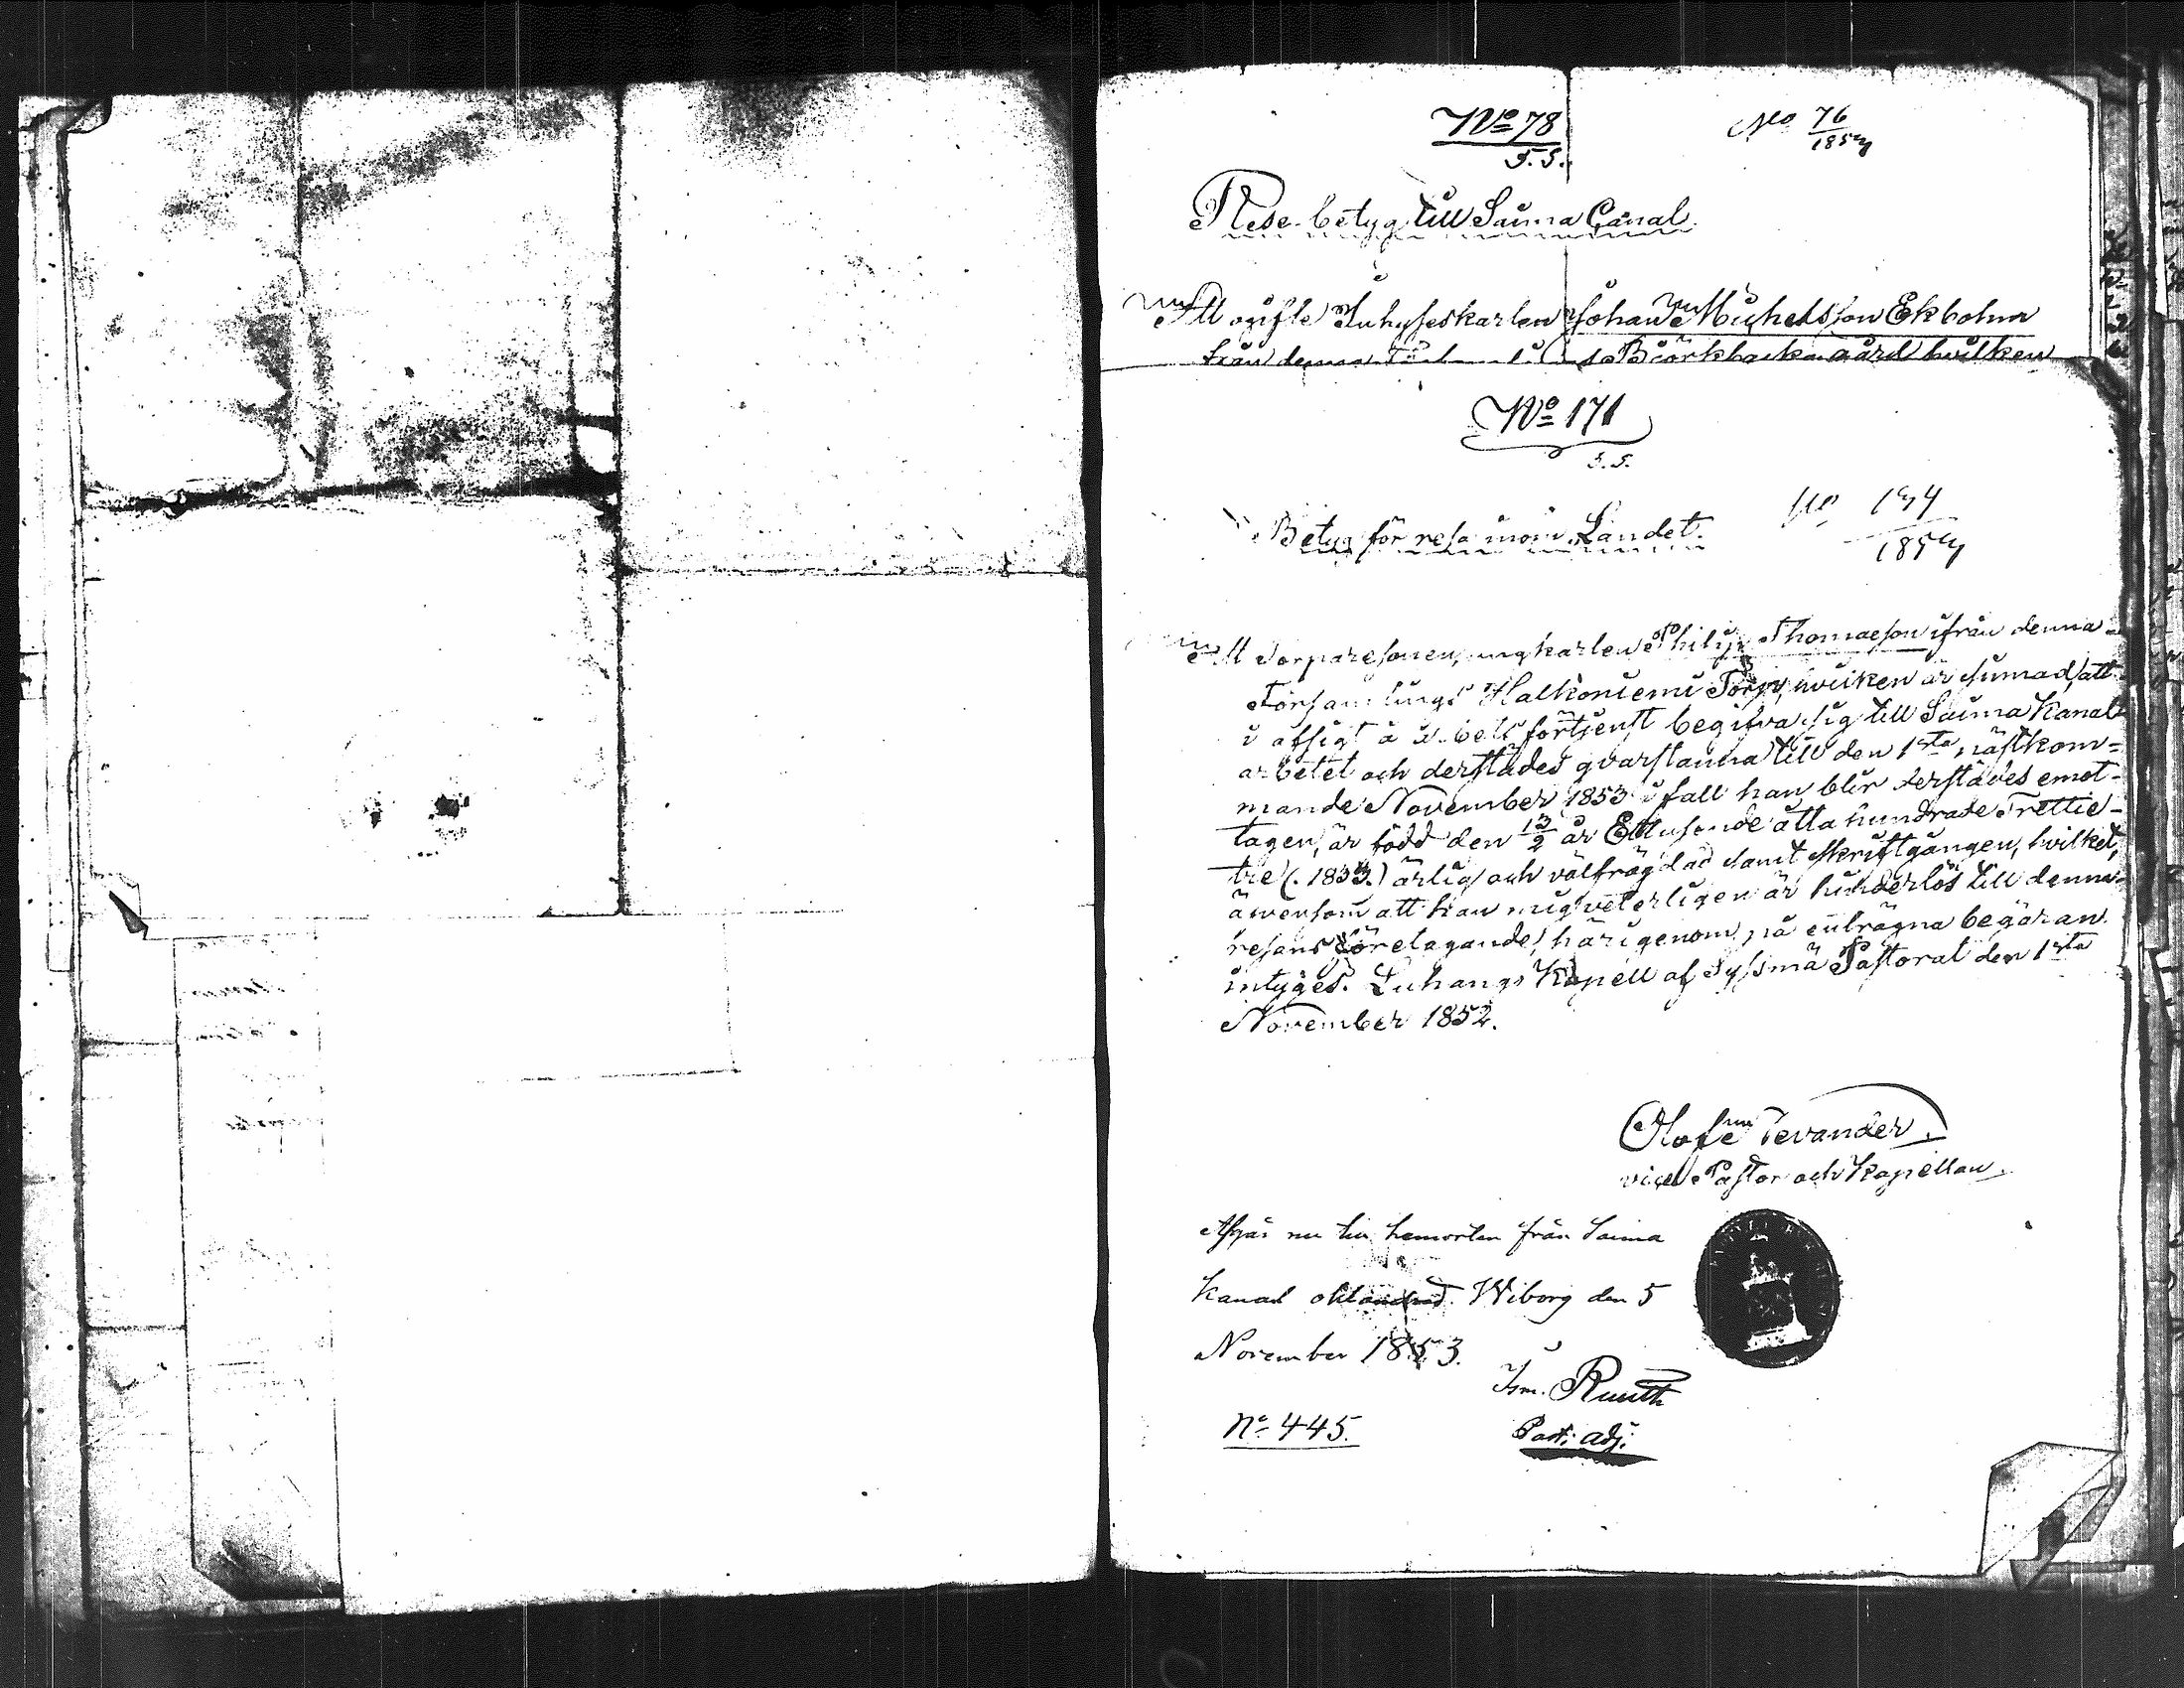 No 78
S. S.
No 76
1854
Rese-betyg till Saima Canal.
Att ogifte Inhyseskarlen Johan Michelsson Ekbohm
från denna Björkbacka gård hvilken
No 171
S. S.
Betyg för resa inom Landet.
No 174
1854
Att Torparesonen, ungkarlen Philip Thomasson ifrån denna
Församlings Halkoniemi Torp, hvilken är sinnad, att
i afsigt å arbets förtjenst begifva sig till Saima Kanal
arbetet och derstädes qvarstanna till den 1sta nästkom=
mande November 1853 i fall han blir derstädes emot-
tagen, är född den 13/2 år Ettusende åtta hundrade Trettio-
tre (. 1833.) ärlig och välfrägdad samt Skriftgången, hvilket,
äwensom att han mig veterligen är hinderlös till denna
resans företagande, härigenom, på enträgna begäran
intygas. Luhanga Kapell af Sysmä Pastorat den 1sta
November 1852.
Olof Tevander
vice Pastor och Kapellan
Afgår nu till hemorten från Saima
Kanal oklandrad. Wiborg den 5
November 1853.
Ruuth
Past: adj.
No 445.